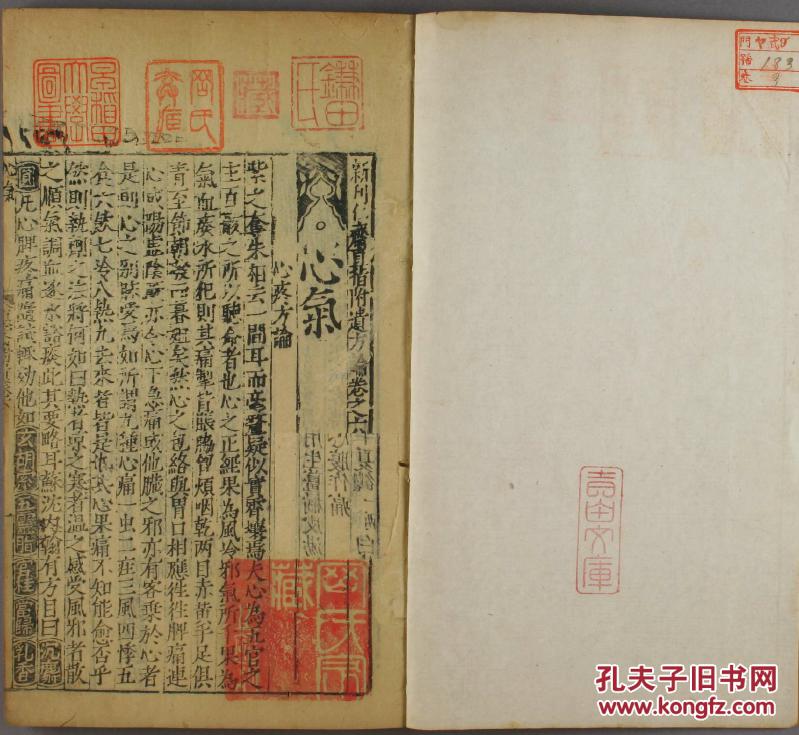 新刊仁齋直指附遺方論卷之六
心氣
心疼方論
紫之奪朱相去一間耳而毫釐疑似實霄壤焉夫心為五官之
主百骸之所以聽命者也心之正經果為風冷邪氣所干果為
氣血痰水所犯則其痛掣背脹脇胷煩咽乾兩目赤黃手足俱
青至節朝發而暮殂矣然心之包絡與胃口相應往往脾痛連
心或陽虛陰厥亦令心下急痛或他臟之邪亦有客乘於心者
是則心之別脉受焉如所謂九種心痛一虫二疰三風四悸五
食六飲七冷八熱九去來者皆是也或心果痛不知能愈否乎
然則執劑之法將何如曰熱者凉之寒者温之感受風邪者散
之順氣調血逐水豁痰此其要略耳蘇沈內翰有方目曰沉麝
圓凡心脾疼痛屢試輒効他如玄胡五靈脂官桂當歸乳香
心氣
心腹作痛
青田文庫
岡氏
藏
鎌田氏
門
號 183
卷 9
孔夫子旧书网
www.kongfz.com